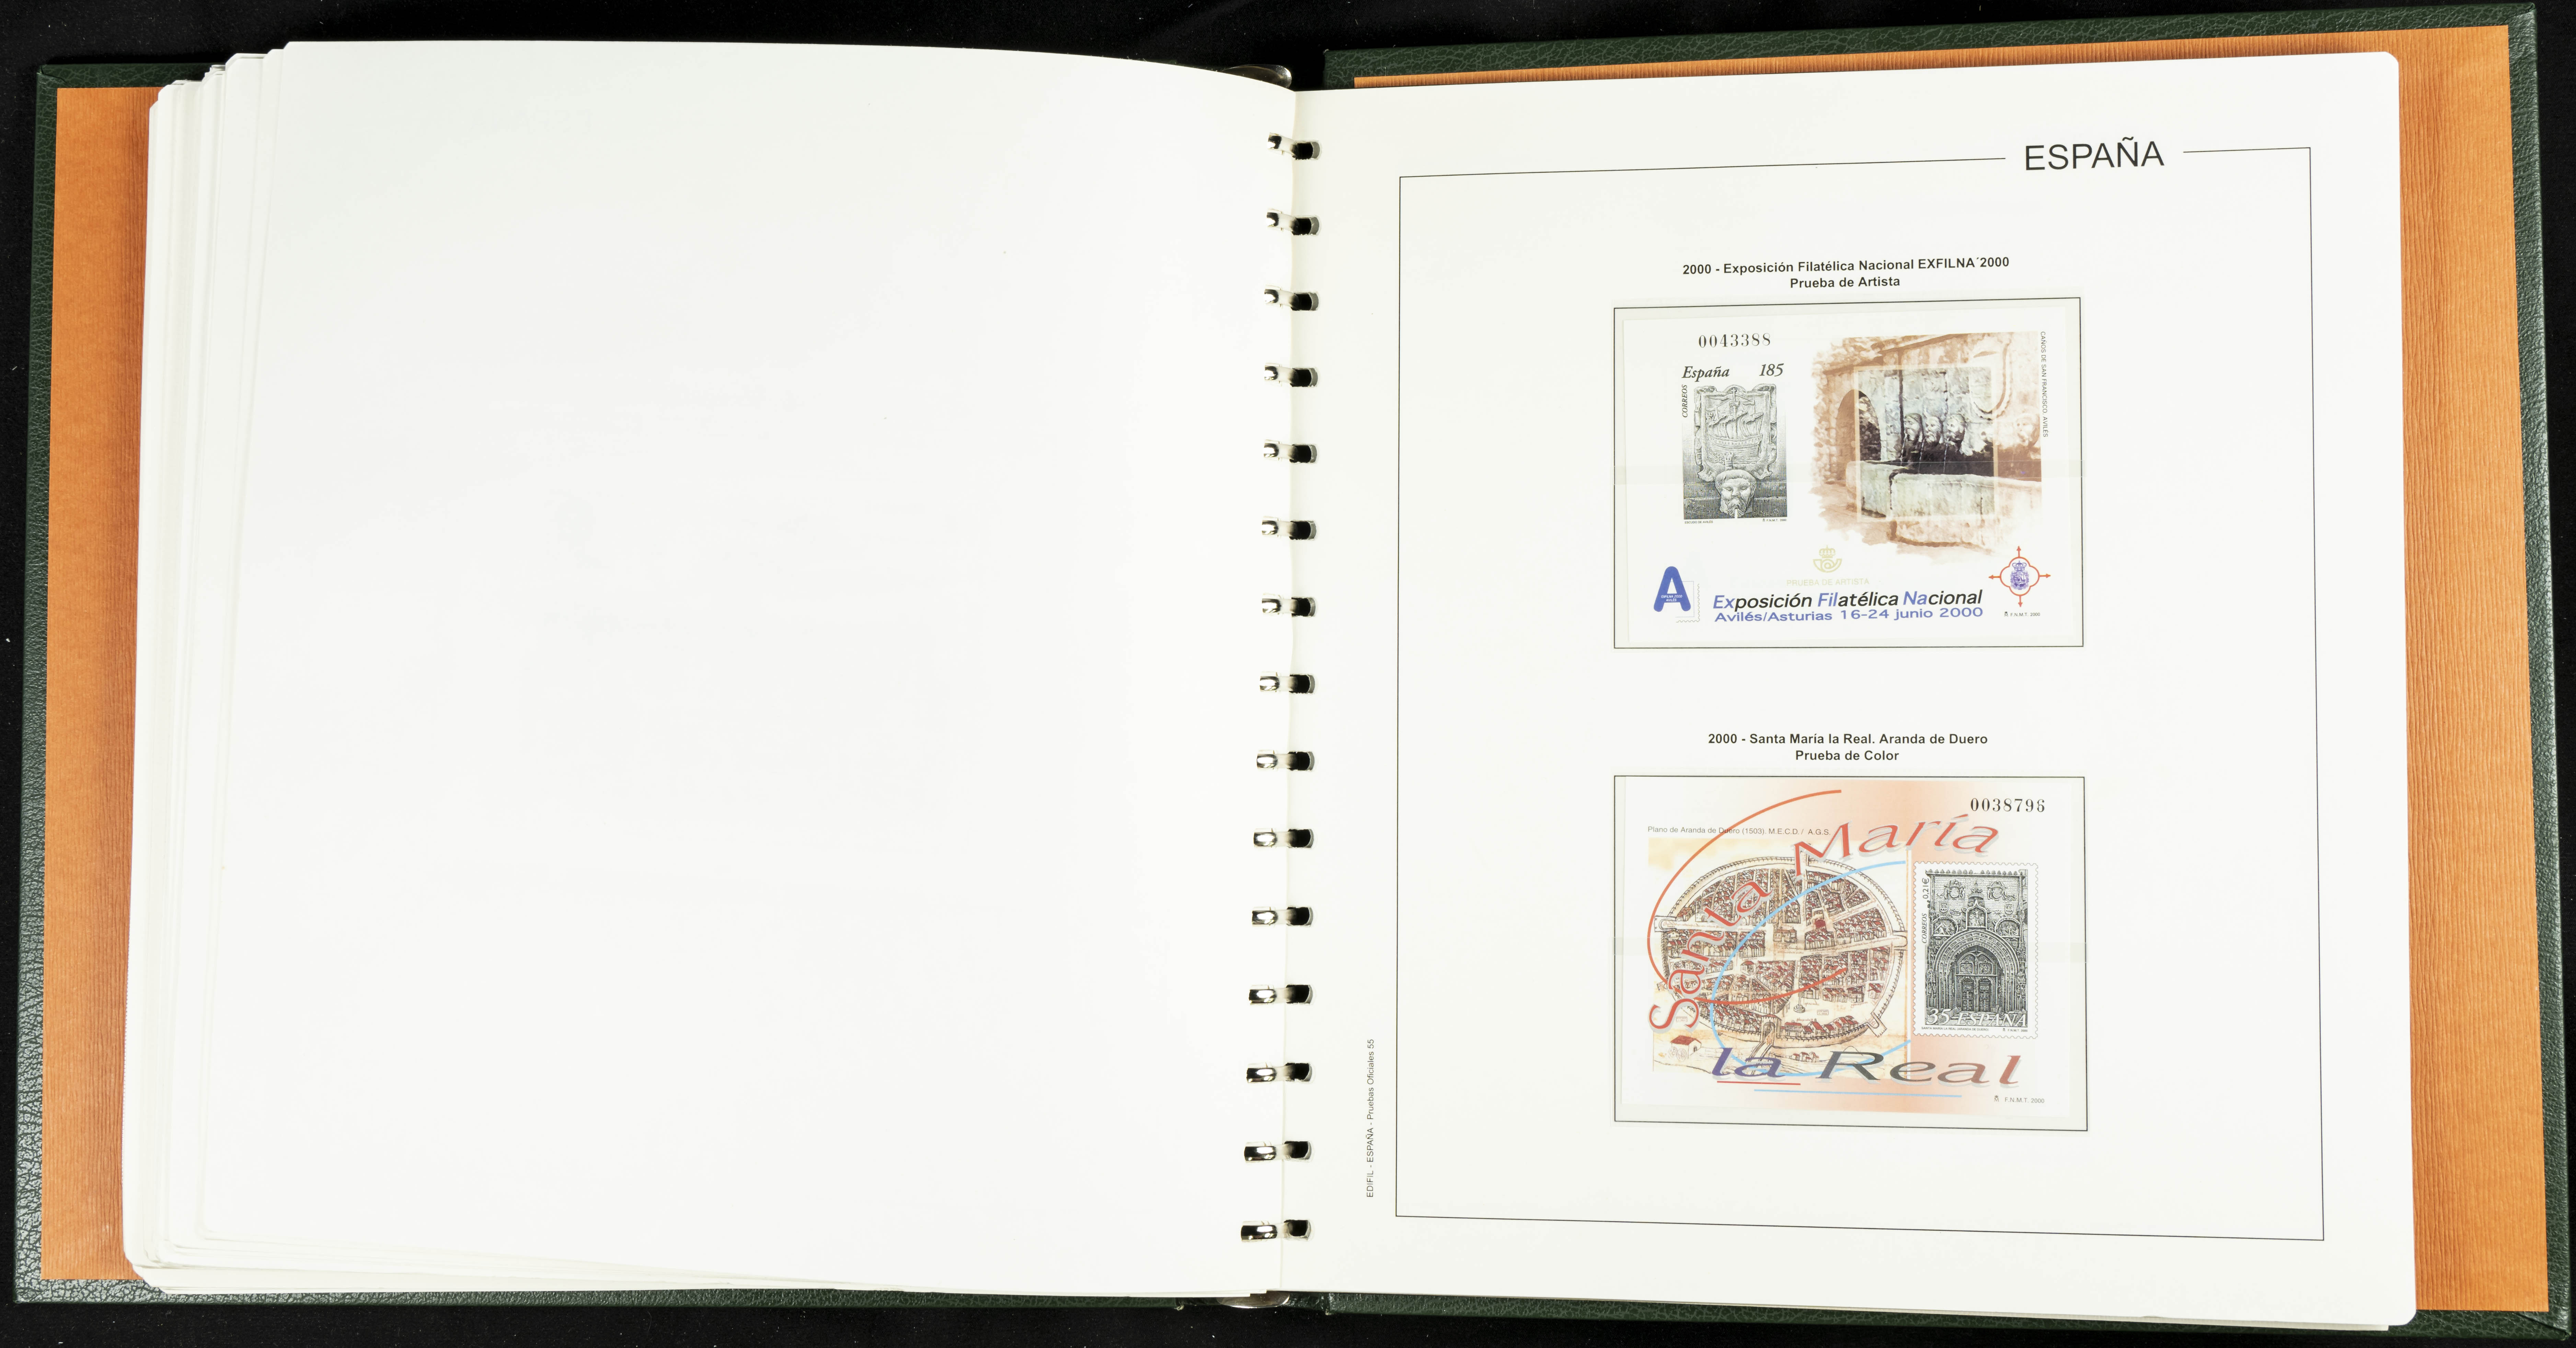 ESPAÑA
2000 - Exposición Filatélica Nacional EXFILNA´2000
Prueba de Artista
0043388
España 185
CORREOS
CAÑOS DE SAN FRANCISCO. AVILÉS
PRUEBA DE ARTISTA
A
Exposición Filatélica Nacional
Avilés/Asturias 16-24 junio 2000
F.N.M.T. 2000
2000 - Santa María la Real. Aranda de Duero
Prueba de Color
0038796
Plano de Aranda de Duero (1503). M.E.C.D. / A.G.S.
Santa María
la Real
CORREOS 0,21€
35 ESPAÑA
F.N.M.T. 2000
EDIFIL - ESPAÑA - Pruebas Oficiales 55